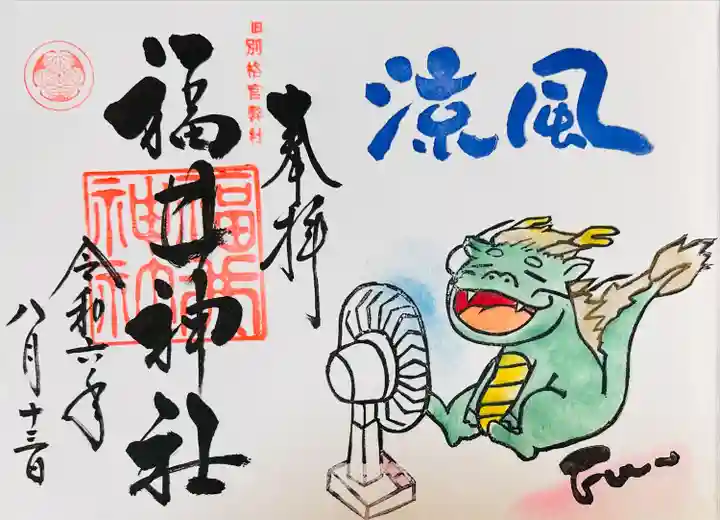 涼風
奉拝
旧別格官幣社
福井神社
福井神社
令和六年
八月十三日